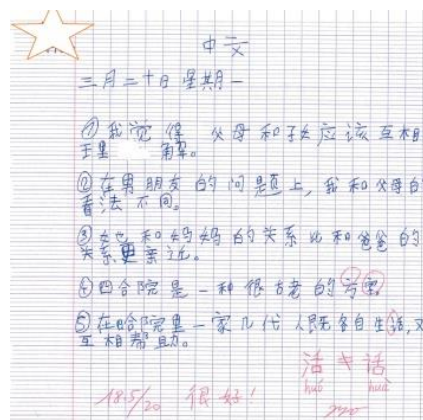 中文
三月二十日 星期一
① 我觉得 父母和子女应该互相
理 解。
② 在男朋友的问题上，我和父母的
看法不同。
③ 她和妈妈的关系比和爸爸的
关系更亲近。
④ 四合院是一种很古老的
⑤ 在哈院里一家几代人既各自生话,又
互相帮助。
活 ≠ 话
huó huà
18.5/20 很好!